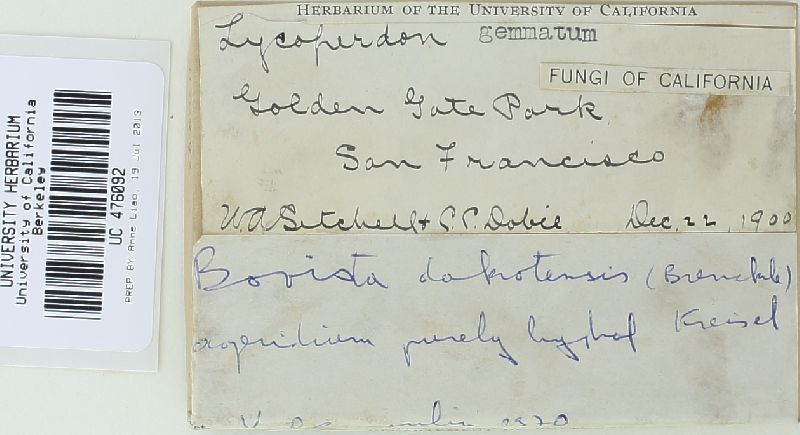 HERBARIUM OF THE UNIVERSITY OF CALIFORNIA
Lycoperdon gemmatum
FUNGI OF CALIFORNIA
Golden Gate Park
San Francisco
W A Setchell & C. C. Dobie Dec, 22, 1900
Bovista dakotensis (Brenckle)
purely hyphal Kreisel
1970
UNIVERSITY HERBARIUM
University of California
Berkeley
UC 476092
PREP BY Anne Liao, 19 Jul 2013